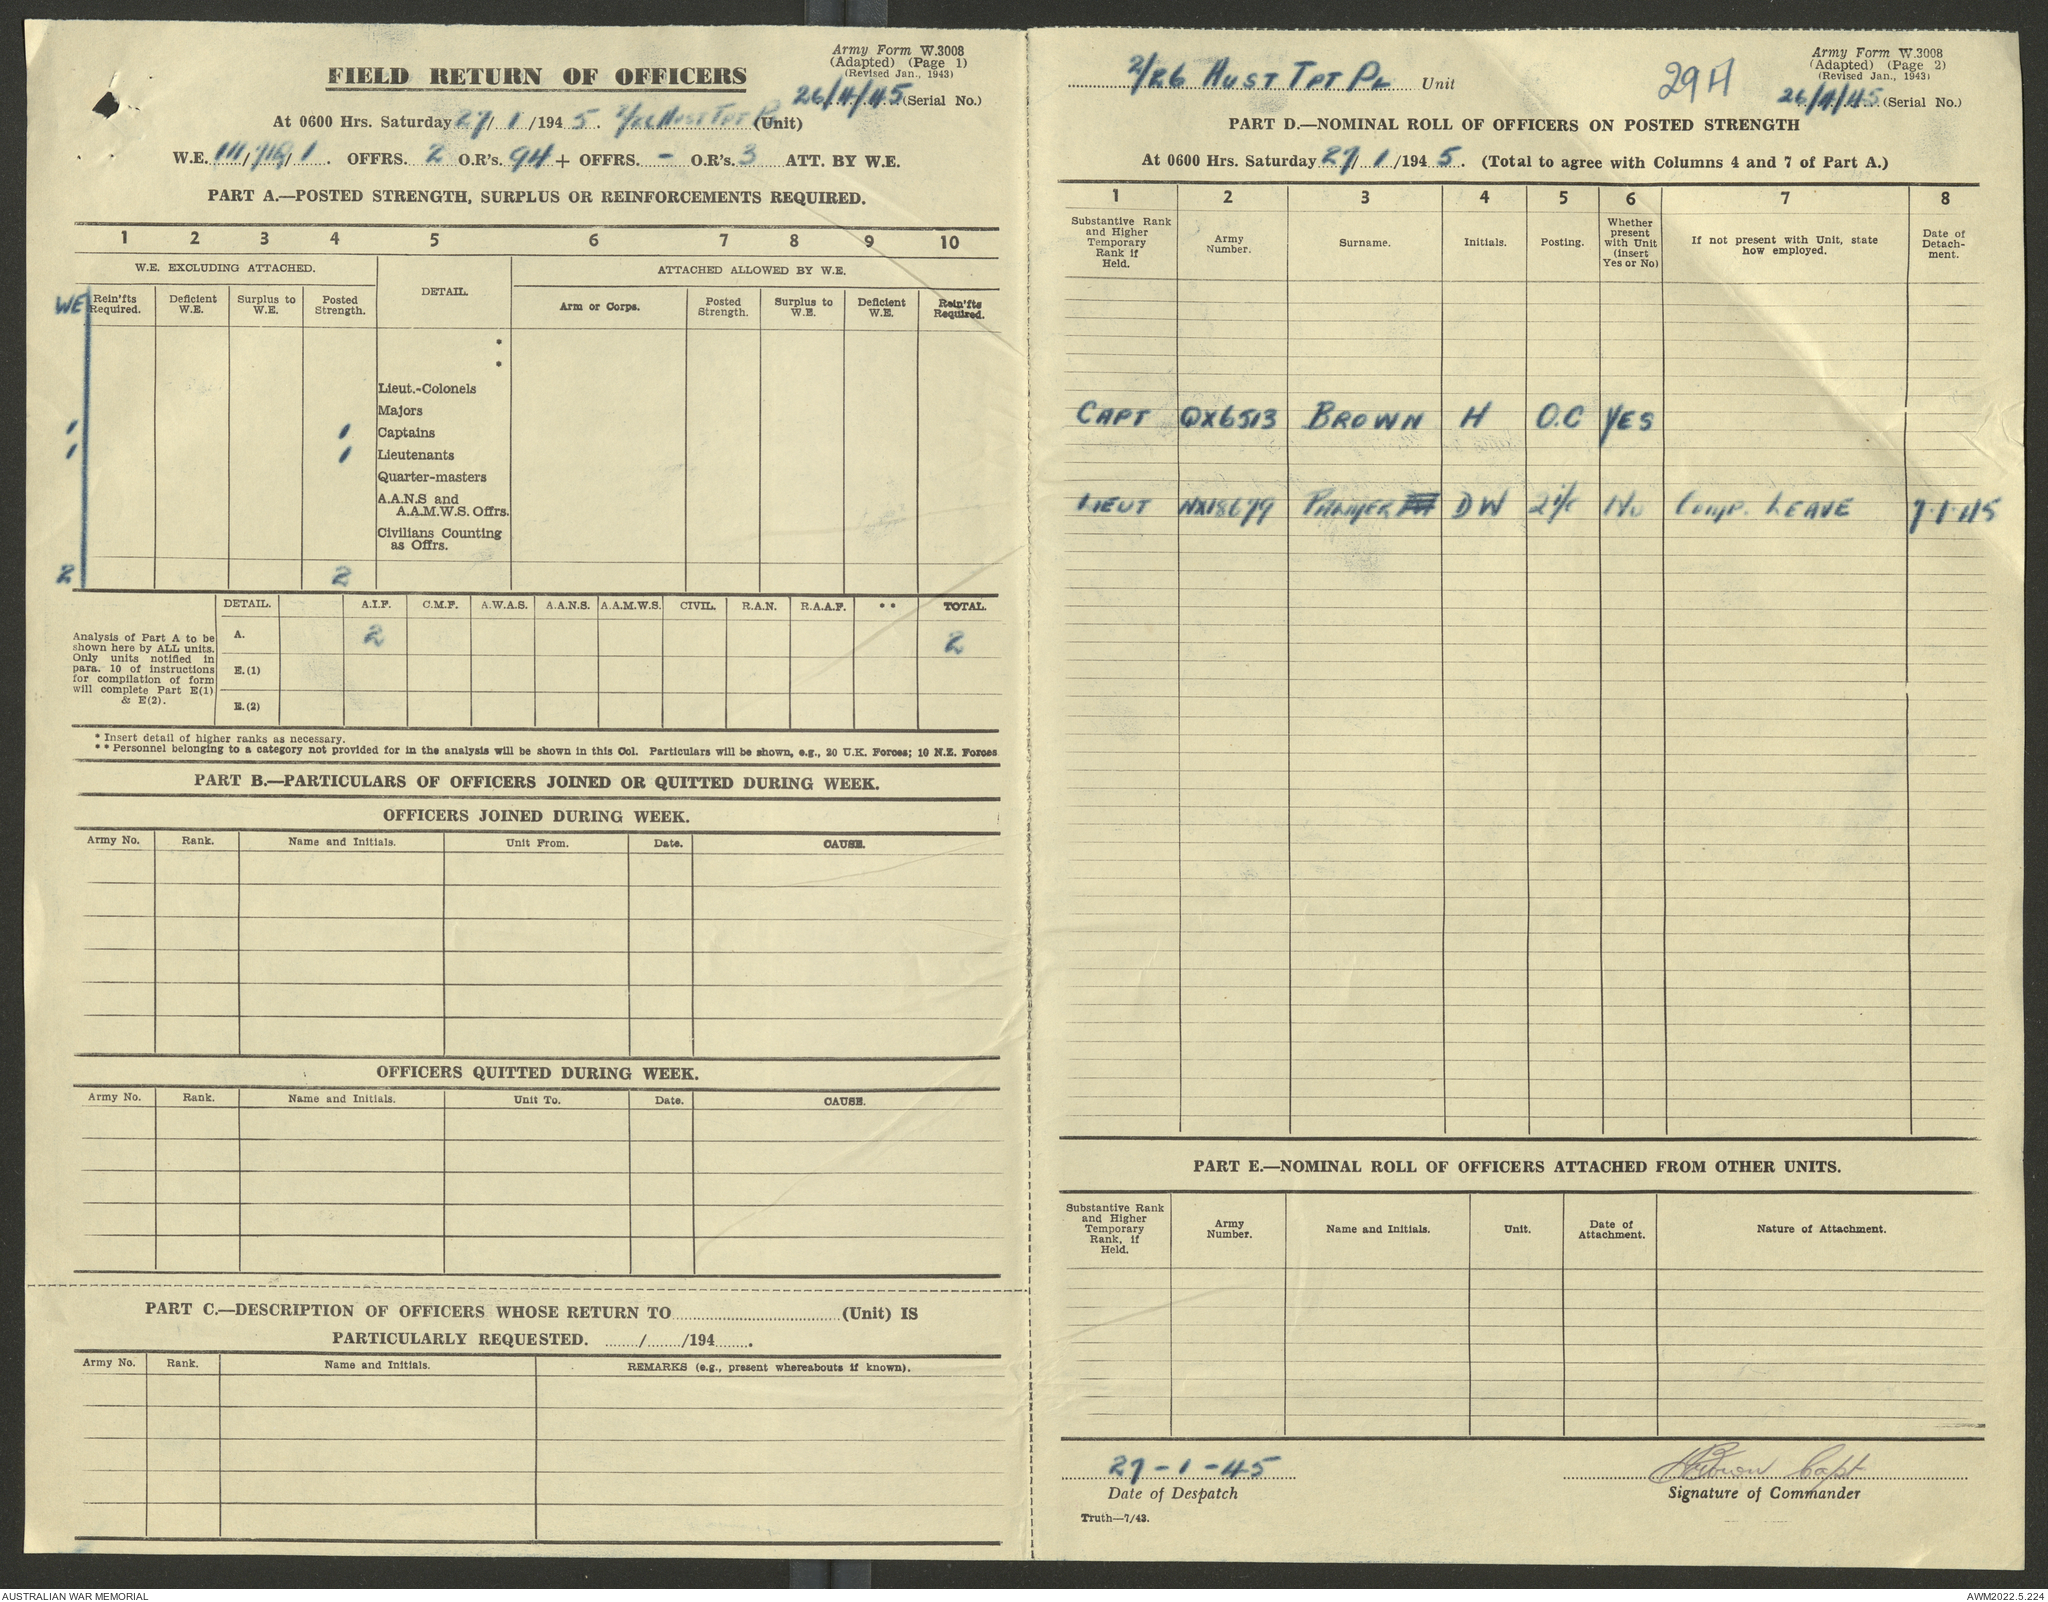 Army Form W.3008
(Adapted) (Page 1)
(Revised Jan., 1943)
FIELD RETURN OF OFFICERS
26/4/45 (Serial No.)
At 0600 Hrs. Saturday 27/1/1945. 2/26 Aust Tpt Pl (Unit)
W.E. 111/ /1. OFFRS. 2 O.R's. 94 + OFFRS. - O.R's. 3 ATT. BY W.E.
PART A.—POSTED STRENGTH, SURPLUS OR REINFORCEMENTS REQUIRED.
1 2 3 4 5 6 7 8 9 10
W.E. EXCLUDING ATTACHED. DETAIL. ATTACHED ALLOWED BY W.E.
WE Rein'fts Required. Deficient W.E. Surplus to W.E. Posted Strength. Arm or Corps. Posted Strength. Surplus to W.E. Deficient W.E. Rein'fts Required.
*
*
Lieut.-Colonels
Majors
1 1 Captains
1 1 Lieutenants
Quarter-masters
A.A.N.S and
A.A.M.W.S. Offrs.
Civilians Counting
as Offrs.
2 2
DETAIL. A.I.F. C.M.F. A.W.A.S. A.A.N.S. A.A.M.W.S. CIVIL. R.A.N. R.A.A.F. ** TOTAL.
Analysis of Part A to be
shown here by ALL units.
Only units notified in
para. 10 of instructions
for compilation of form
will complete Part E(1)
& E(2).
A. 2 2
E.(1)
E.(2)
* Insert detail of higher ranks as necessary.
** Personnel belonging to a category not provided for in the analysis will be shown in this Col. Particulars will be shown, e.g., 20 U.K. Forces; 10 N.Z. Forces
PART B.—PARTICULARS OF OFFICERS JOINED OR QUITTED DURING WEEK.
OFFICERS JOINED DURING WEEK.
Army No. Rank. Name and Initials. Unit From. Date. CAUSE.
OFFICERS QUITTED DURING WEEK.
Army No. Rank. Name and Initials. Unit To. Date. CAUSE.
PART C.—DESCRIPTION OF OFFICERS WHOSE RETURN TO (Unit) IS
PARTICULARLY REQUESTED. ....../......../194........
Army No. Rank. Name and Initials. REMARKS (e.g., present whereabouts if known).
2/26 AUST TPT PL Unit
29A
Army Form W.3008
(Adapted) (Page 2)
(Revised Jan., 1943)
26/4/45 (Serial No.)
PART D.—NOMINAL ROLL OF OFFICERS ON POSTED STRENGTH
At 0600 Hrs. Saturday 27/1/1945. (Total to agree with Columns 4 and 7 of Part A.)
1 2 3 4 5 6 7 8
Substantive Rank and Higher Temporary Rank if Held. Army Number. Surname. Initials. Posting. Whether present with Unit (insert Yes or No) If not present with Unit, state how employed. Date of Detach-ment.
CAPT QX6513 BROWN H O.C YES
LIEUT NX18679 PALMER DW 2i/c No Comp. LEAVE 7.1.45
PART E.—NOMINAL ROLL OF OFFICERS ATTACHED FROM OTHER UNITS.
Substantive Rank and Higher Temporary Rank, if Held. Army Number. Name and Initials. Unit. Date of Attachment. Nature of Attachment.
27-1-45 HBrown Capt
Date of Despatch Signature of Commander
Truth—7/43.
AUSTRALIAN WAR MEMORIAL AWM2022.5.224